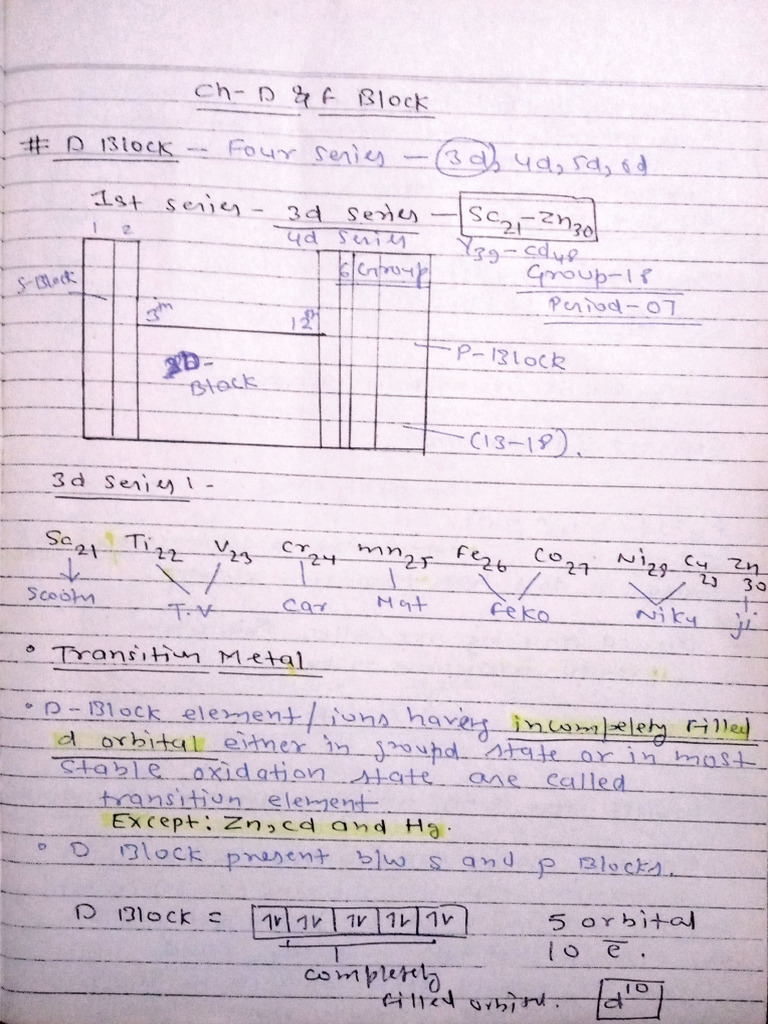 Ch- D & f Block
# D Block - Four series - 3d, 4d, 5d, 6d
1st series - 3d series - Sc21-Zn30
4d series Y39-Cd48
1 2 6 Group Group-18
S-Block Period-07
3rd 12th
P-Block
D-
Block
(13-18).
3d series :-
Sc21 Ti22 V23 Cr24 Mn25 Fe26 Co27 Ni28 Cu29 Zn30
Scootn T.V Car Mat FeKo NiKu ji
• Transition Metal
• D-Block element/ions having incompletely filled
d orbital either in groupd state or in most
stable oxidation state are called
transition element
Except: Zn, Cd and Hg.
• D Block present b/w s and p Blocks.
D Block = 1v 1v 1v 1v 1v 5 orbital
10 e̅.
completely
filled orbital. d¹⁰